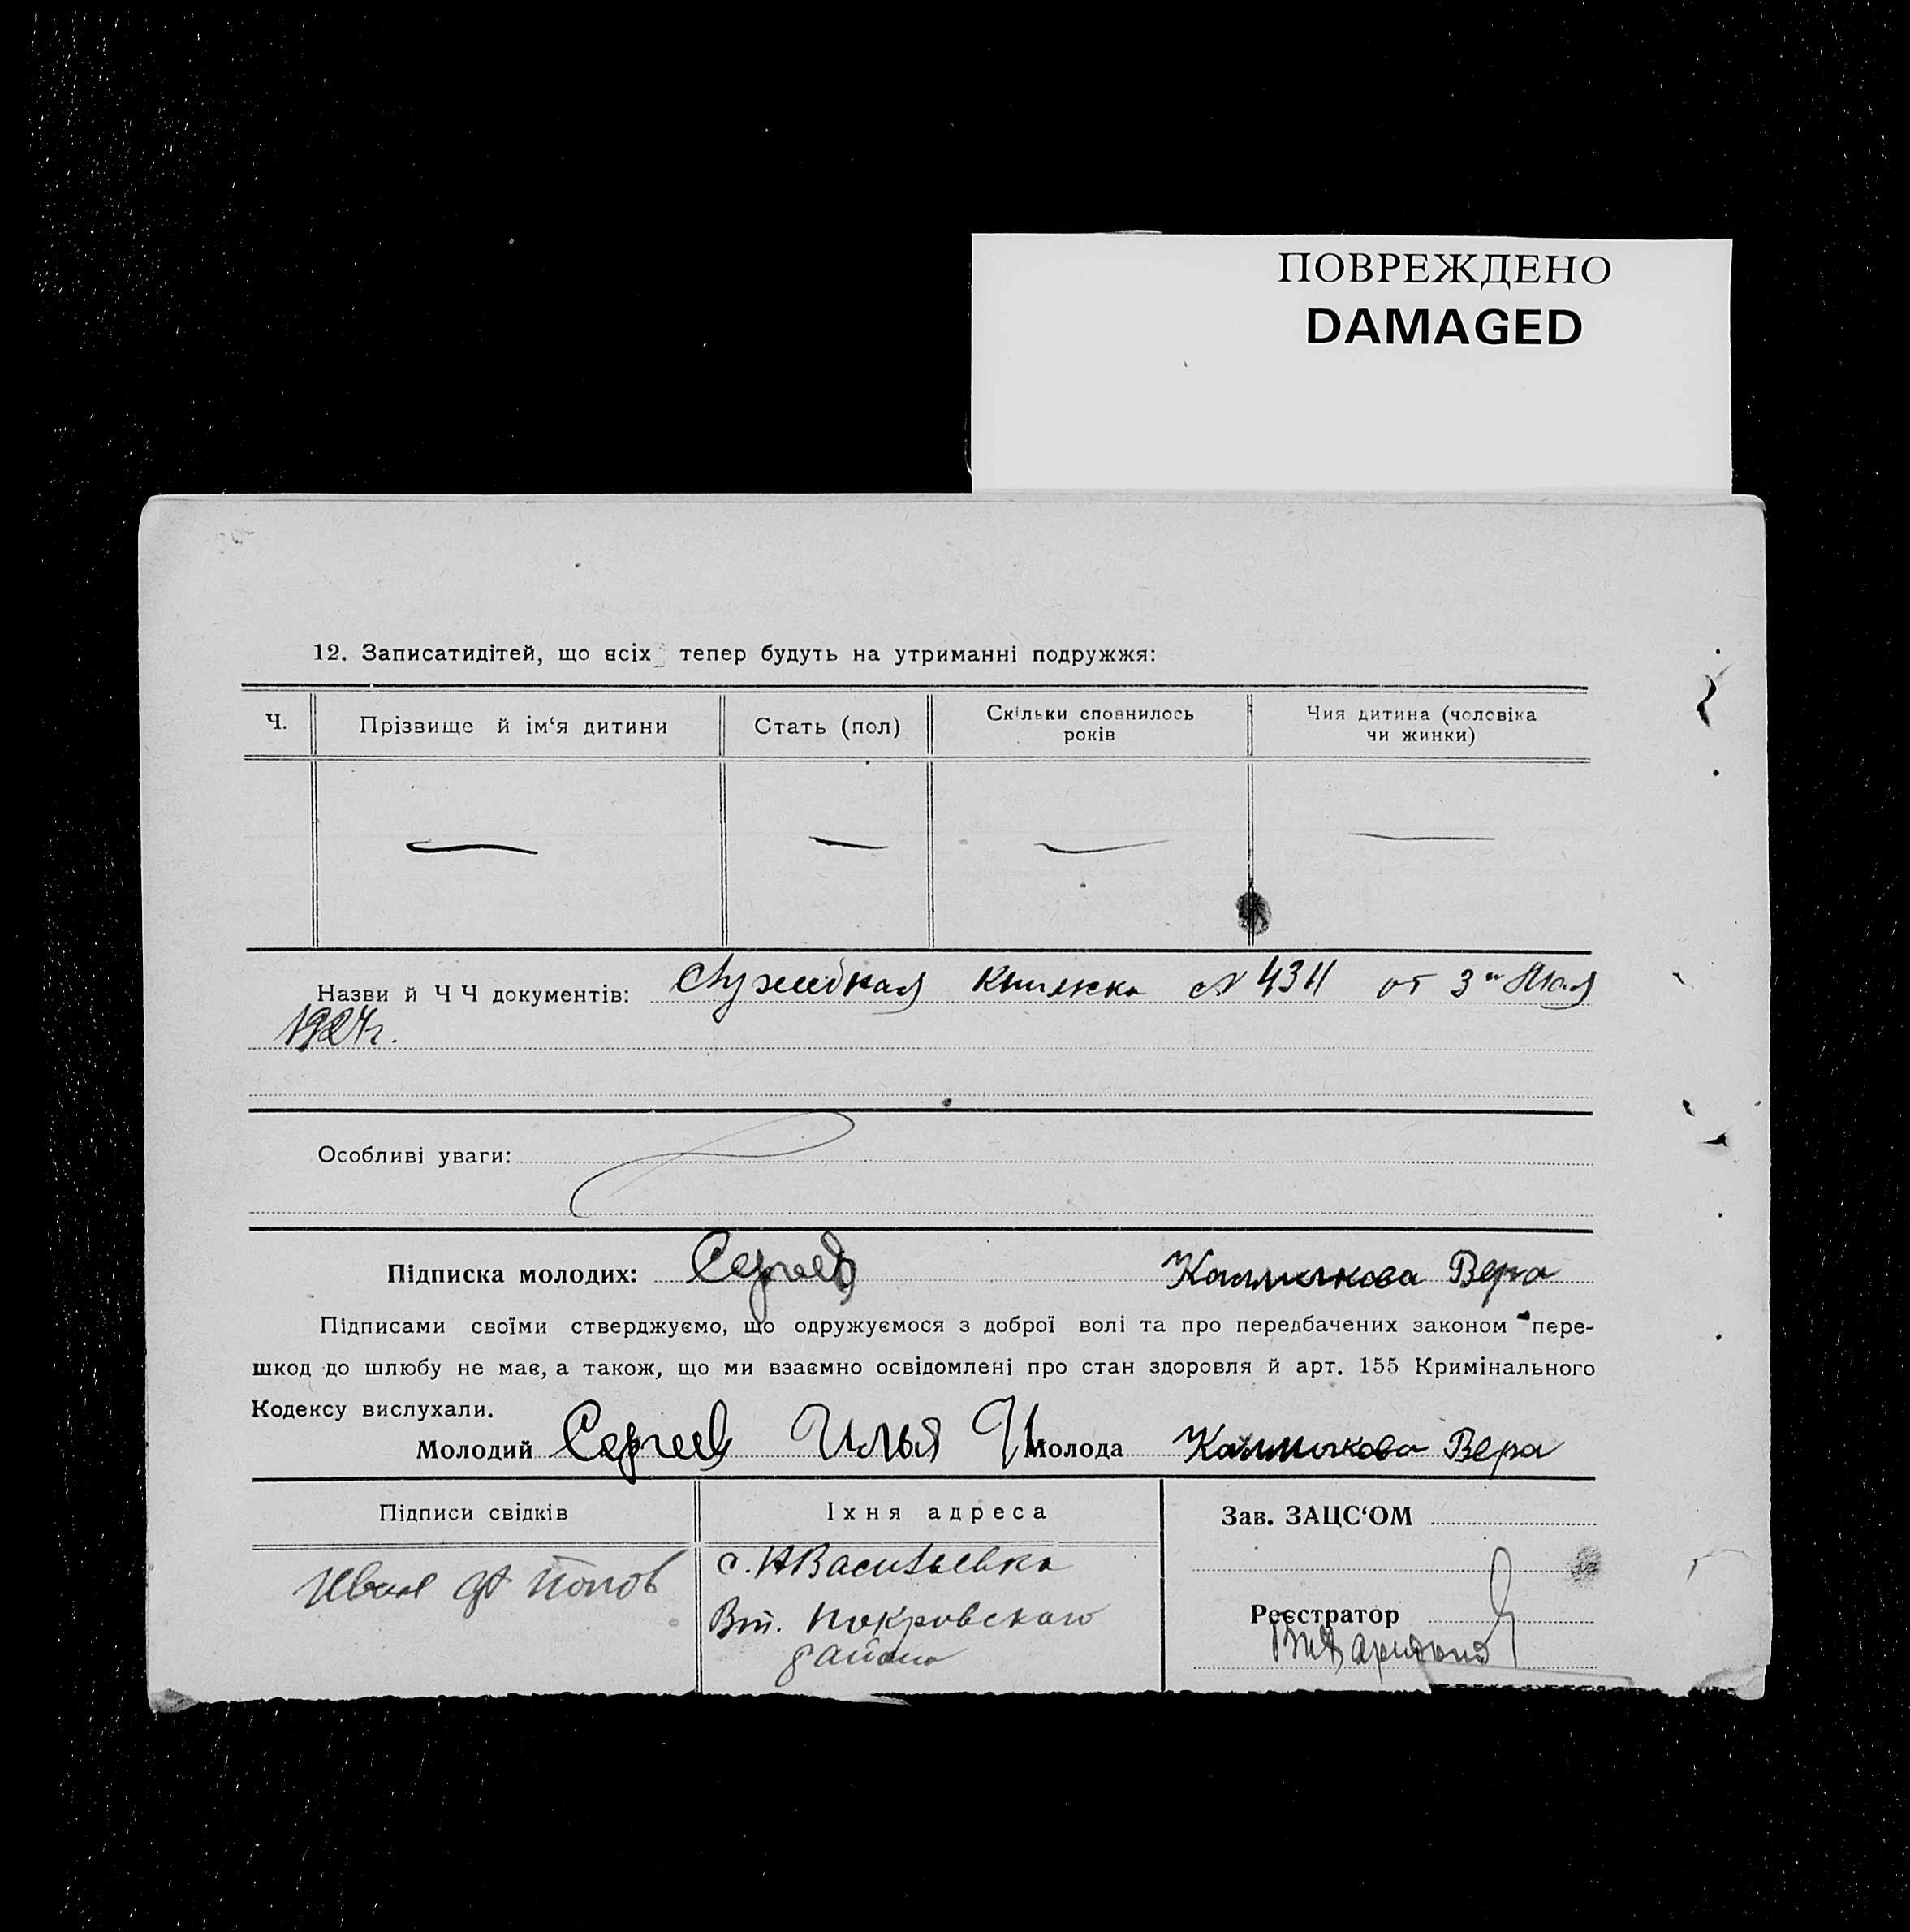 ПОВРЕЖДЕНО
DAMAGED
12. Записатидітей, що всіх тепер будуть на утриманні подружжя:
Ч.
Прізвище й ім'я дитини
Стать (пол)
Скільки сповнилось
років
Чия дитина (чоловіка
чи жинки)
Назви й Ч Ч документів: Служебная книжка № 4311 от 3го Июля
1927г.
Особливі уваги:
Підписка молодих: Сергеев Калмыкова Вера
Підписами своїми стверджуємо, що одружуємося з доброї волі та про передбачених законом пере-
шкод до шлюбу не має, а також, що ми взаємно освідомлені про стан здоровля й арт. 155 Кримінального
Кодексу вислухали.
Молодий Сергеев Илья И Молода Калмыкова Вера
Підписи свідків
Іхня адреса
Зав. ЗАЦС'ОМ
Иван Ф Попов
с. НВасильевка
Вт. Покровскаго
района
Реєстратор